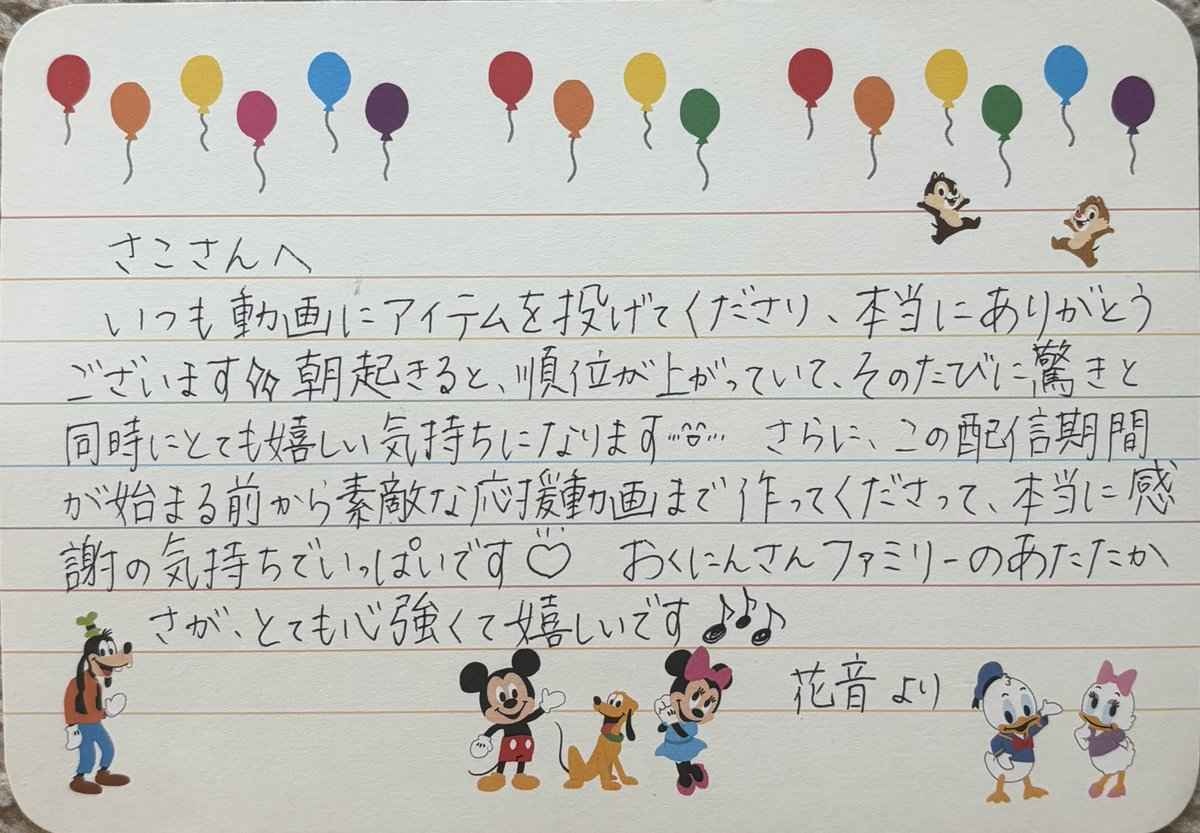 さこさんへ
いつも動画にアイテムを投げてくださり、本当にありがとう
ございます 朝起きると、順位が上がっていて、そのたびに驚きと
同時にとても嬉しい気持ちになります さらに、この配信期間
が始まる前から素敵な応援動画まで作ってくださって、本当に感
謝の気持ちでいっぱいです♡ おくにんさんファミリーのあたたか
さが、とても心強くて嬉しいです♪♪♪
花音より